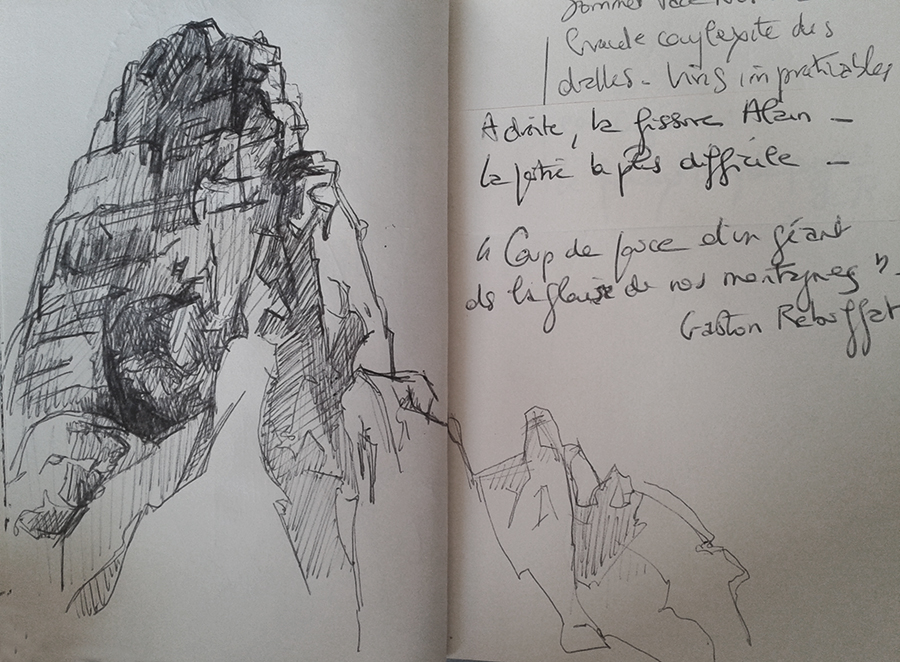 Sommet
Grande complexité des
dalles - Vires impraticables
A droite, la fissure Allain -
la partie la plus difficile -
"Coup de pouce d'un géant
ds la glaise de nos montagnes"
Gaston Rébuffat